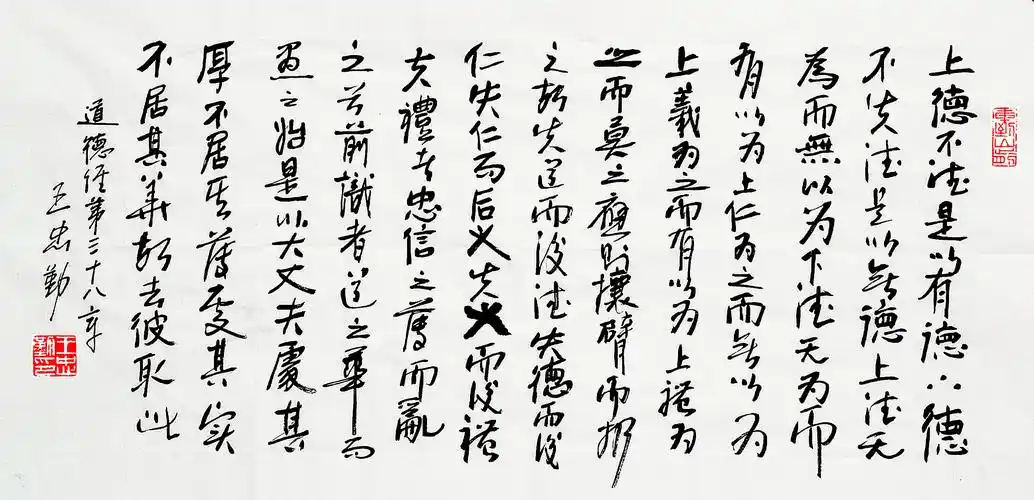 上德不德是以有德下德
不失德是以無德上德无
為而無以为下德无为而
有以为上仁为之而無以为
上義为之而有以为上禮为
之而莫之應則攘臂而扔
之故失道而後德失德而後
仁失仁而后义失义而後禮
夫禮者忠信之薄而亂
之首前識者道之華而
愚之始是以大丈夫處其
厚不居其薄處其实
不居其華故去彼取此
道德经第三十八章
王忠勤
王忠勤印